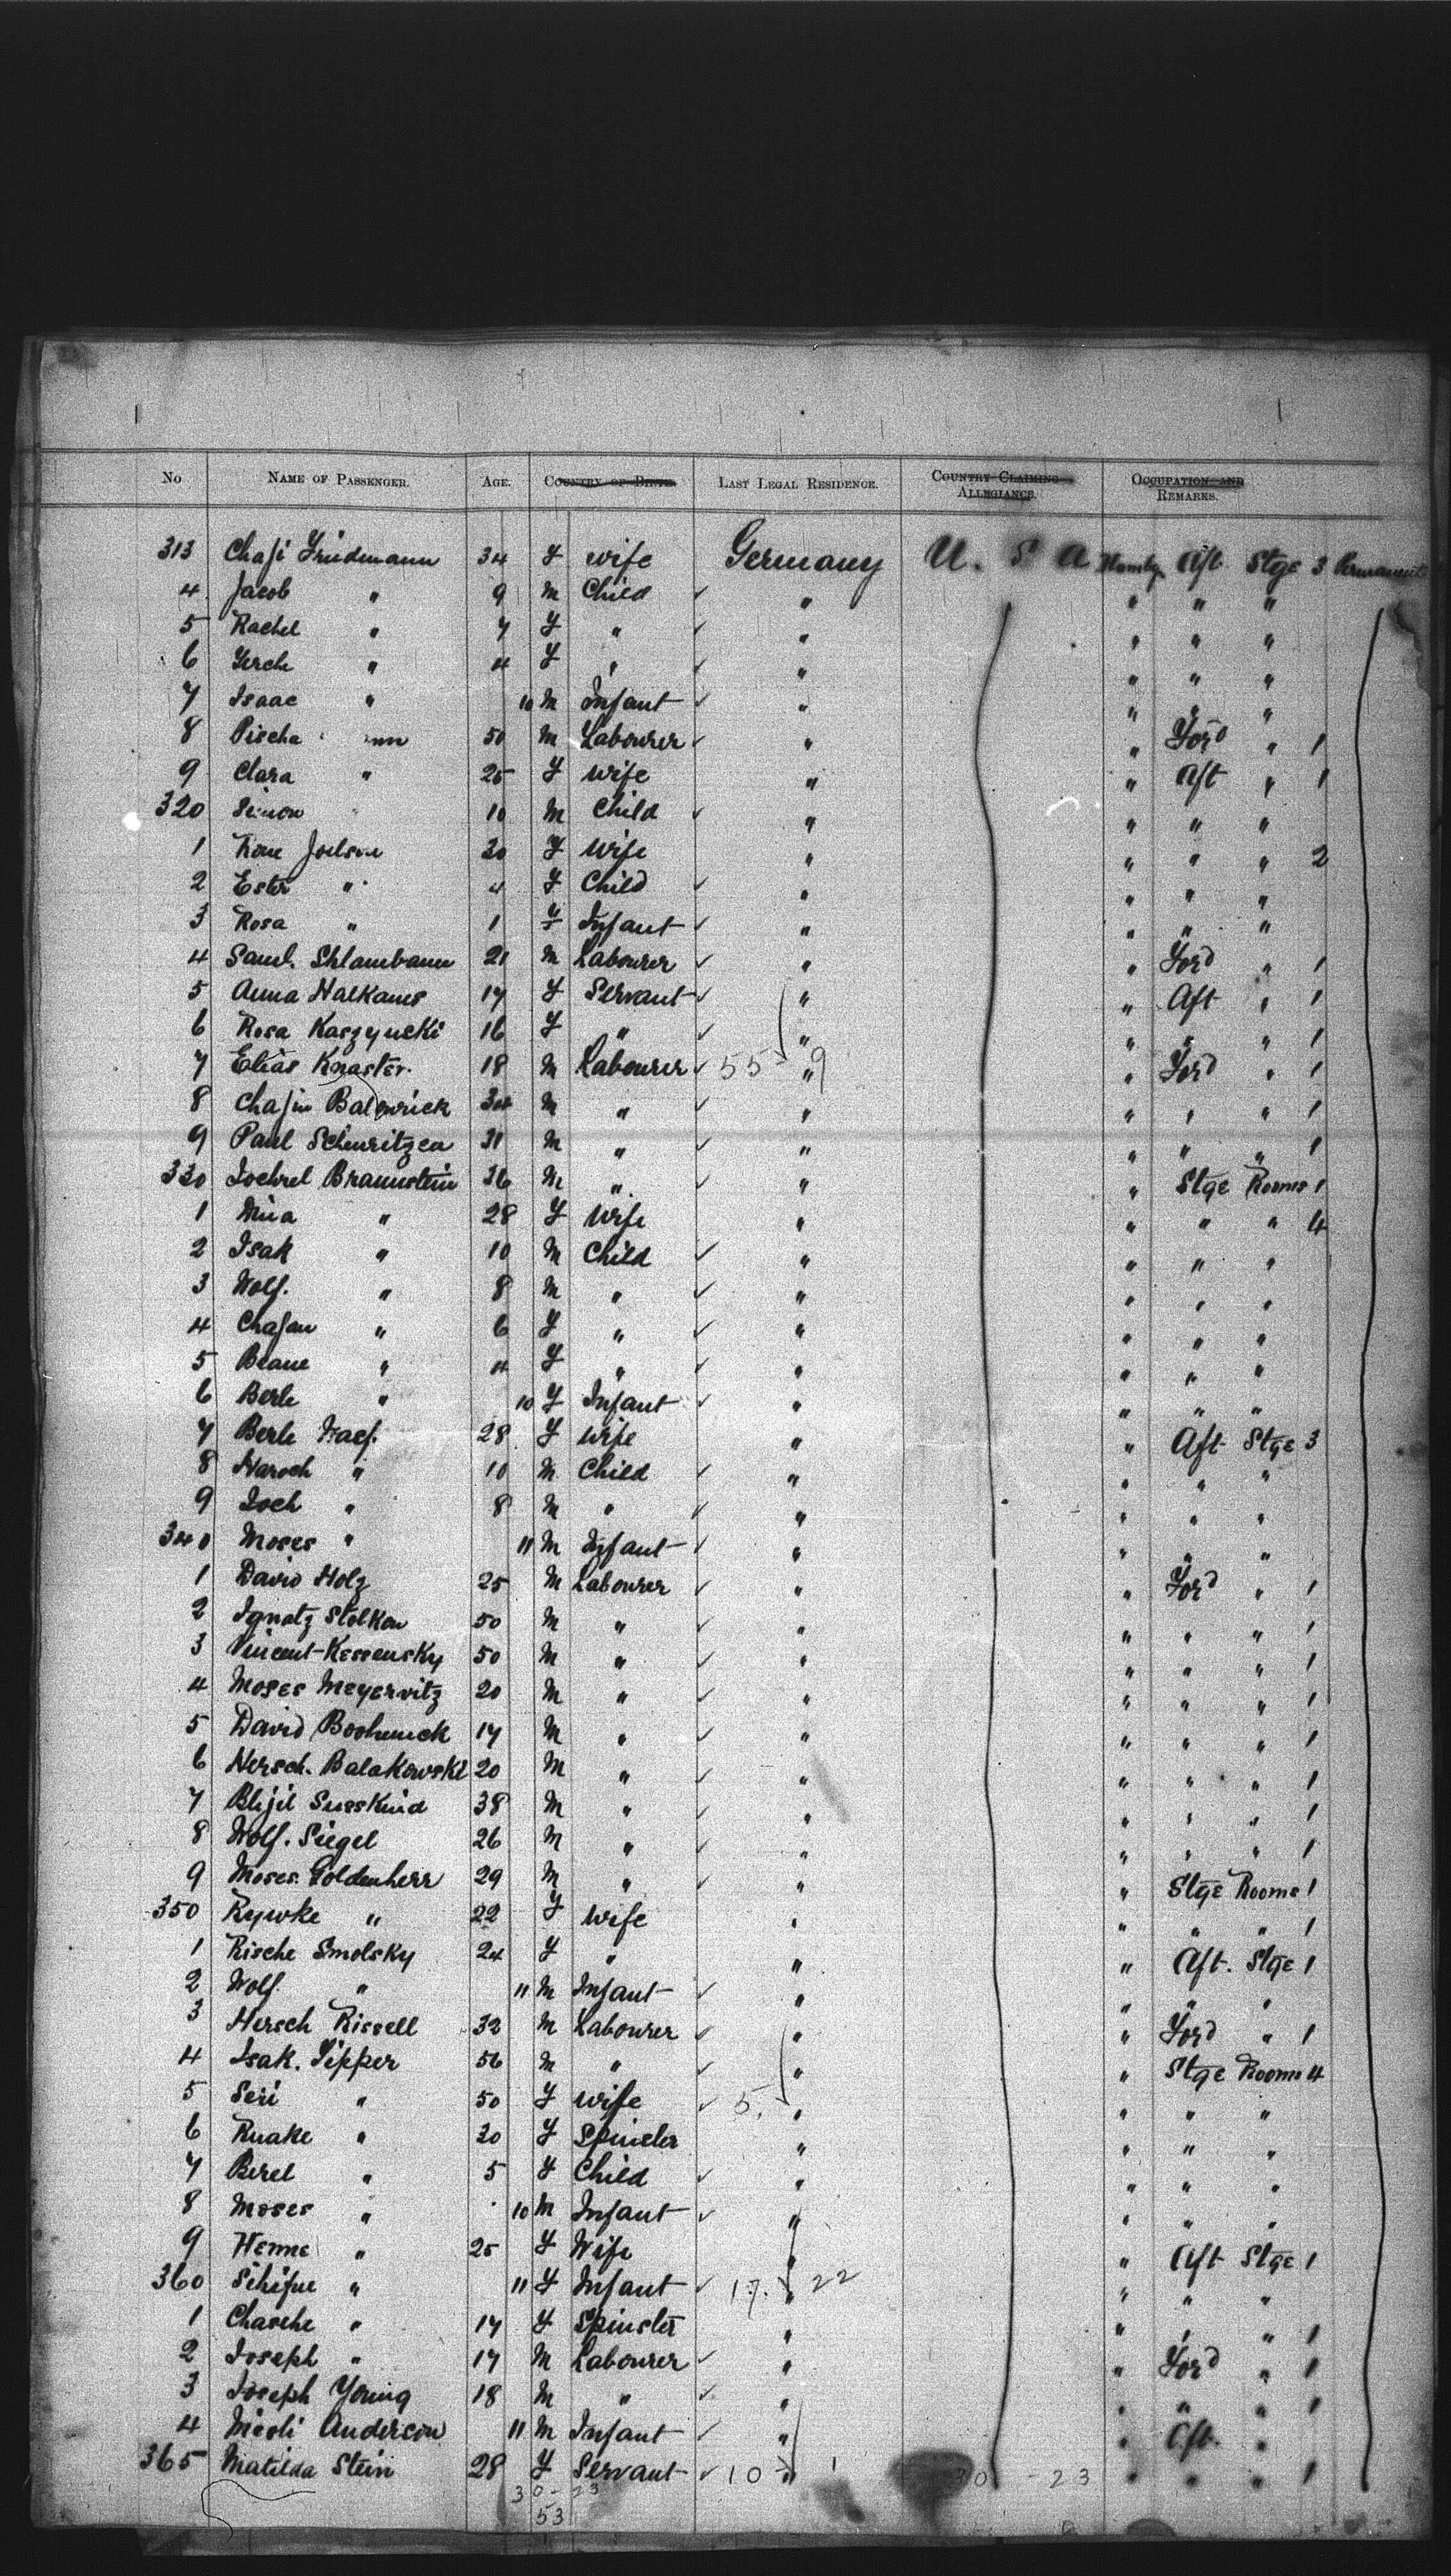 No NAME OF PASSENGER. AGE. COUNTRY OF BIRTH. LAST LEGAL RESIDENCE. COUNTRY CLAIMING ALLEGIANCE. OCCUPATION AND REMARKS.
313 Friedmann 34 F wife Germany U. S A Aft Stge 3 Permanent
4 Jacob " 9 M Child " " " "
5 Rachel " 7 F " " " " "
6 " 4 F " " " " "
7 Isaac " 10 M Infant " " " "
8 Pische 50 M Labourer " " Ford " 1
9 Clara " 25 F wife " " Aft " 1
320 Simon 10 M Child " " " "
1 Joelson 30 F Wife " " " " 2
2 Ester " 4 F Child " " " "
3 Rosa " 1 F Infant " " " "
4 Saml. 21 M Labourer " " Ford " 1
5 Anna 17 F Servant " " Aft " 1
6 Rosa 16 F " " " " " 1
7 Elias Knaster 18 M Labourer 55 " 9 " Ford " 1
8 34 M " " " " " 1
9 Paul 31 M " " " " " 1
330 Braunstein 36 M " " " Stge Rooms 1
1 Mira " 28 F Wife " " " " 4
2 Isak " 10 M Child " " " "
3 Wolf. " 8 M " " " " "
4 " 6 F " " " " "
5 " 4 F " " " " "
6 Berle " 10 F Infant " " " "
7 Berle 28 F Wife " " Aft Stge 3
8 " 10 M Child " " " "
9 " 8 M " " " " "
340 Moses " 11 M Infant " " " "
1 David Holz 25 M Labourer " " Ford " 1
2 Ignatz Stolkow 50 M " " " " " 1
3 Vincent Kessensky 50 M " " " " " 1
4 Moses Meyervitz 20 M " " " " " 1
5 David 17 M " " " " " 1
6 Hersch. Balakowski 20 M " " " " " 1
7 Susskind 38 M " " " " " 1
8 Wolf. Siegel 26 M " " " " " 1
9 Moses Goldenherr 29 M " " " Stge Rooms 1
350 Rywke " 22 F Wife " " " " 1
1 Rische Smolsky 24 F " " " Aft. Stge 1
2 Wolf. " 11 M Infant " " " "
3 Hersch Rissell 32 M Labourer " " Ford " 1
4 Isak. Pipper 56 M " " " Stge Rooms 4
5 " 50 F wife 5. " " " "
6 " 30 F Spinster " " " "
7 Berel " 5 F Child " " " "
8 Moses " 10 M Infant " " " "
9 Henne " 25 F Wife " " Aft Stge 1
360 " 11 F Infant 17. " 22 " " "
1 Chasche " 17 F Spinster " " " " 1
2 Joseph " 17 M Labourer " " Ford " 1
3 Joseph Young 18 M " " " " " 1
4 Anderson 11 M Infant " " Aft. "
365 Matilda Stein 28 F Servant 10 " 1 " " " 1
30-23 30 - 23
53